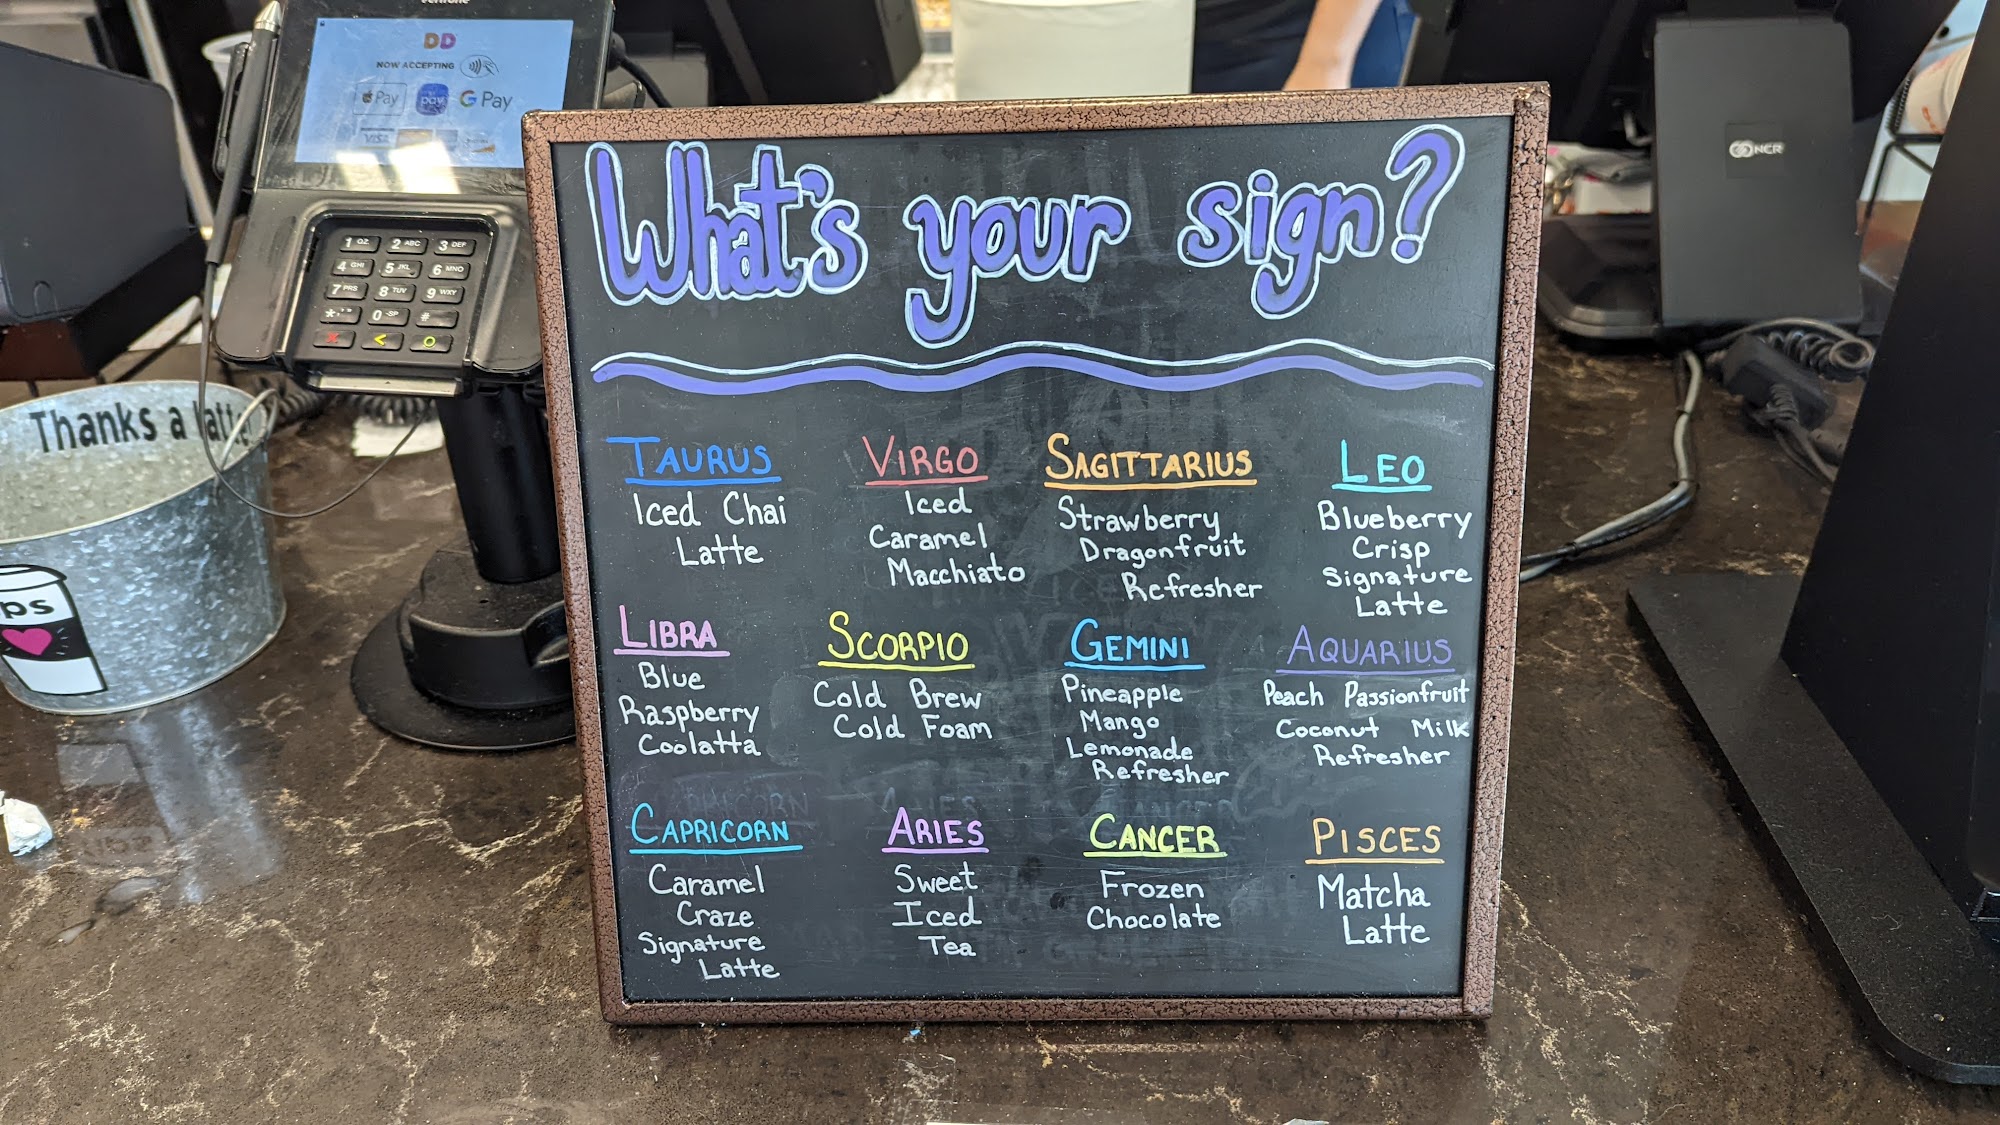 verifone
DD
NOW ACCEPTING
Pay
pay
G Pay
VISA
1 QZ.
2 ABC
3 DEF
4 GHI
5 JKL
6 MNO
7 PRS
8 TUV
9 WXY
*
0 -SP
#
X
<
O
Thanks a latte!
ps
NCR
What's your sign?
TAURUS
Iced Chai
Latte
VIRGO
Iced
Caramel
Macchiato
SAGITTARIUS
Strawberry
Dragonfruit
Refresher
LEO
Blueberry
Crisp
Signature
Latte
LIBRA
Blue
Raspberry
Coolatta
SCORPIO
Cold Brew
Cold Foam
GEMINI
Pineapple
Mango
Lemonade
Refresher
AQUARIUS
Peach Passionfruit
Coconut Milk
Refresher
CAPRICORN
Caramel
Craze
Signature
Latte
ARIES
Sweet
Iced
Tea
CANCER
Frozen
Chocolate
PISCES
Matcha
Latte